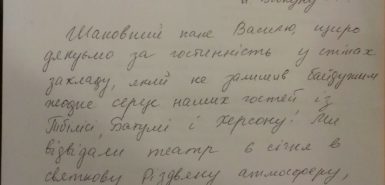 Шановний пане Василю, щиро
дякуємо за гостинність у стінах
закладу, який не залишив байдужим
жодне серце наших гостей із
Тбілісі, Батумі і Херсону! Ми
відвідали театр 6 січня в
святкову різдвяну атмосферу,